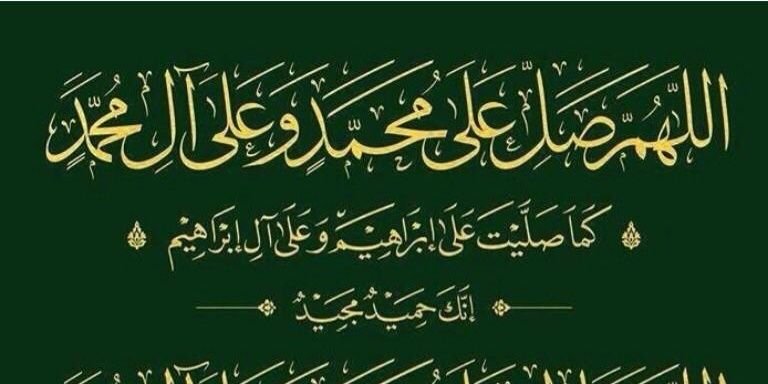 اللَّهُمَّ صَلِّ عَلَى مُحَمَّدٍ وَعَلَى آلِ مُحَمَّدٍ
كَمَا صَلَّيْتَ عَلَى إِبْرَاهِيْمَ وَعَلَى آلِ إِبْرَاهِيْمَ
إِنَّكَ حَمِيْدٌ مَجِيْدٌ